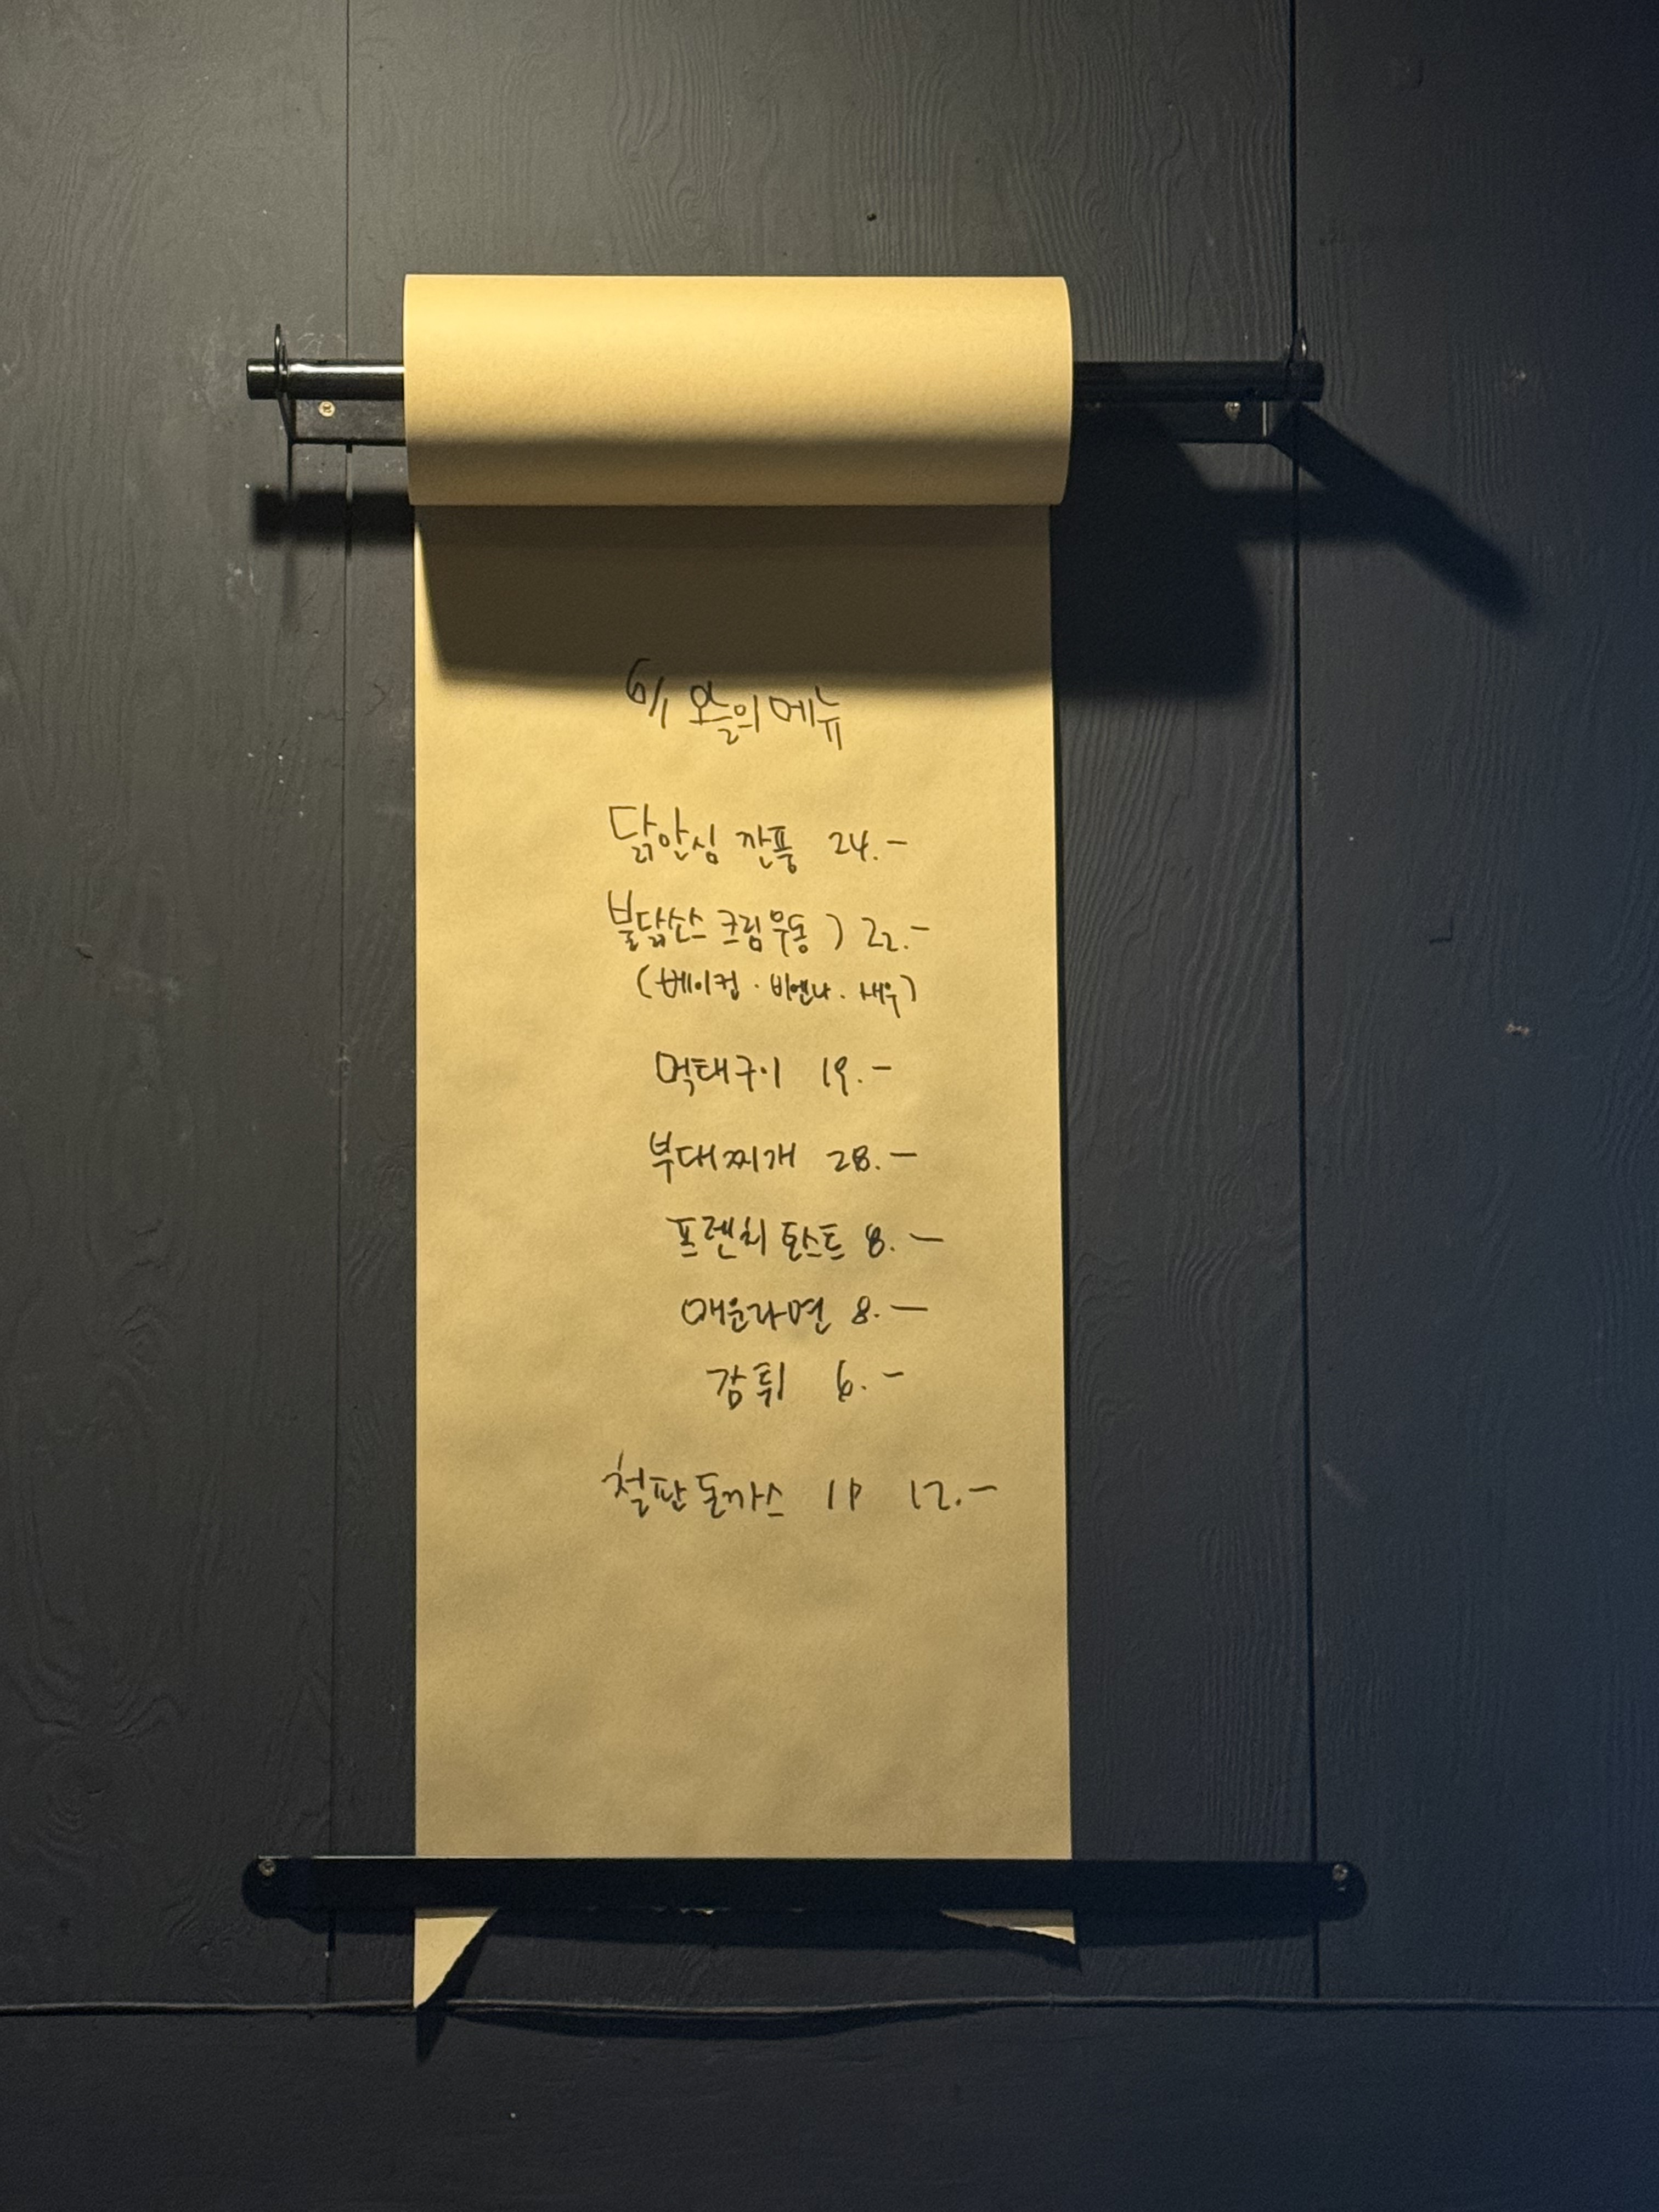 6/1 오늘의 메뉴
닭안심 깐풍 24.-
불닭소스 크림우동 ) 22.-
(베이컨 · 비엔나 · 새우)
먹태구이 19.-
부대찌개 28.-
프렌치 토스트 8.-
매운라면 8.-
감튀 6.-
철판돈까스 1P 12.-